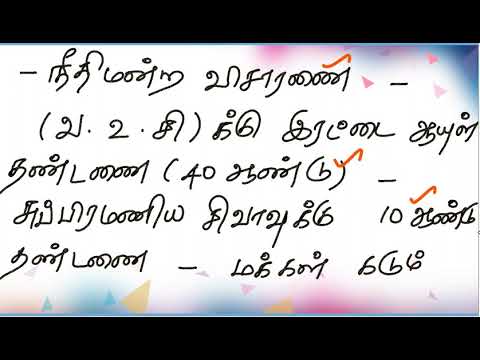 - நீதிமன்ற விசாரணை -
(வ. உ. சி) க்கு இரட்டை ஆயுள்
தண்டணை (40 ஆண்டு) -
சுப்பிரமணிய சிவாவுக்கு 10 ஆண்டு
தண்டணை - மக்கள் கடும்